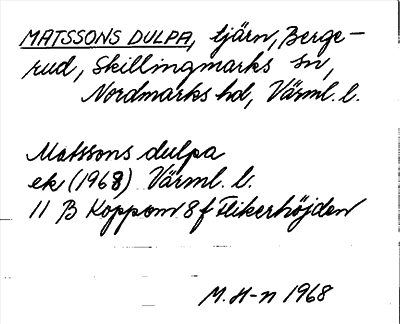 MATSSONS DULPA, tjärn, Berge-
rud, Skillingmarks sn,
Nordmarks hd, Värml. l.
Matssons dulpa
ek (1968) Värml. l.
11 B Koppom 8 f Flikerhöjden
M. H-n 1968